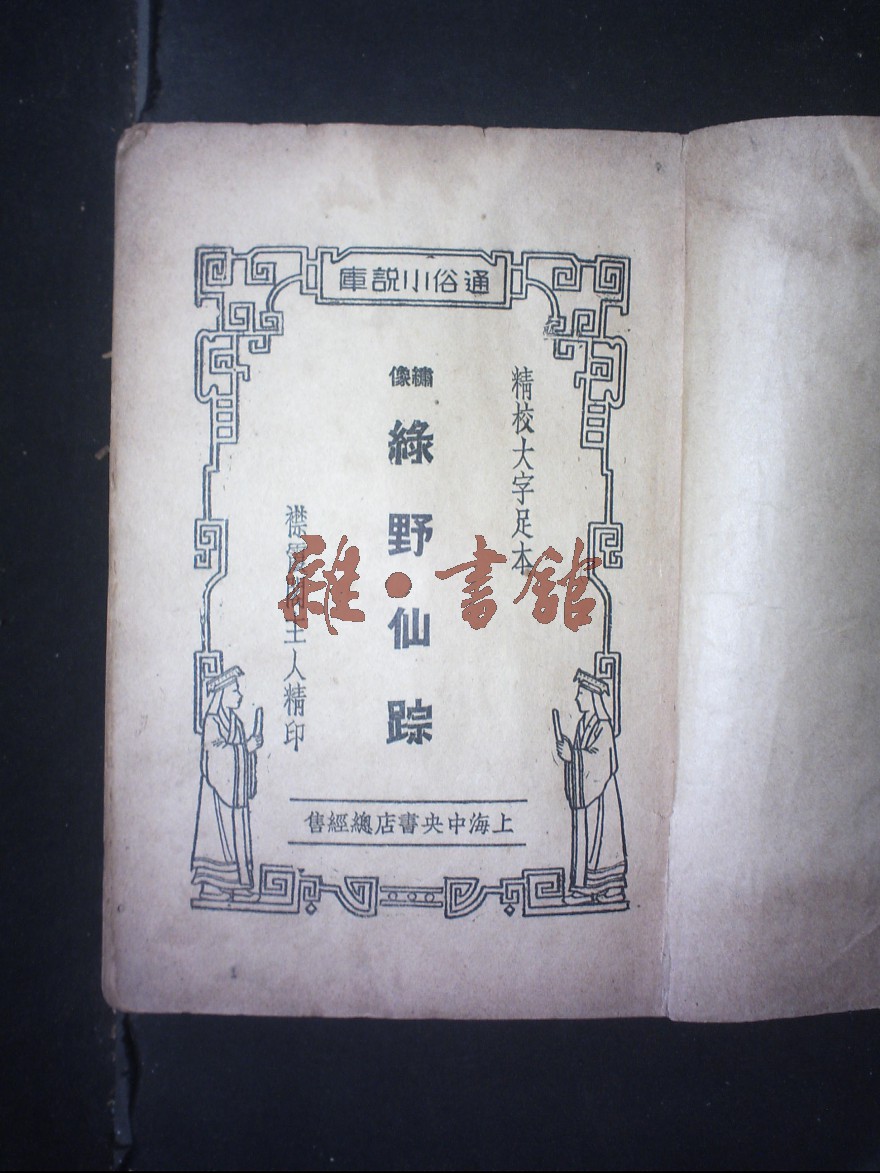 通俗小説庫
精校大字足本
繡像
綠野仙踪
襟霞閣主人精印
上海中央書店總經售
雜·書館